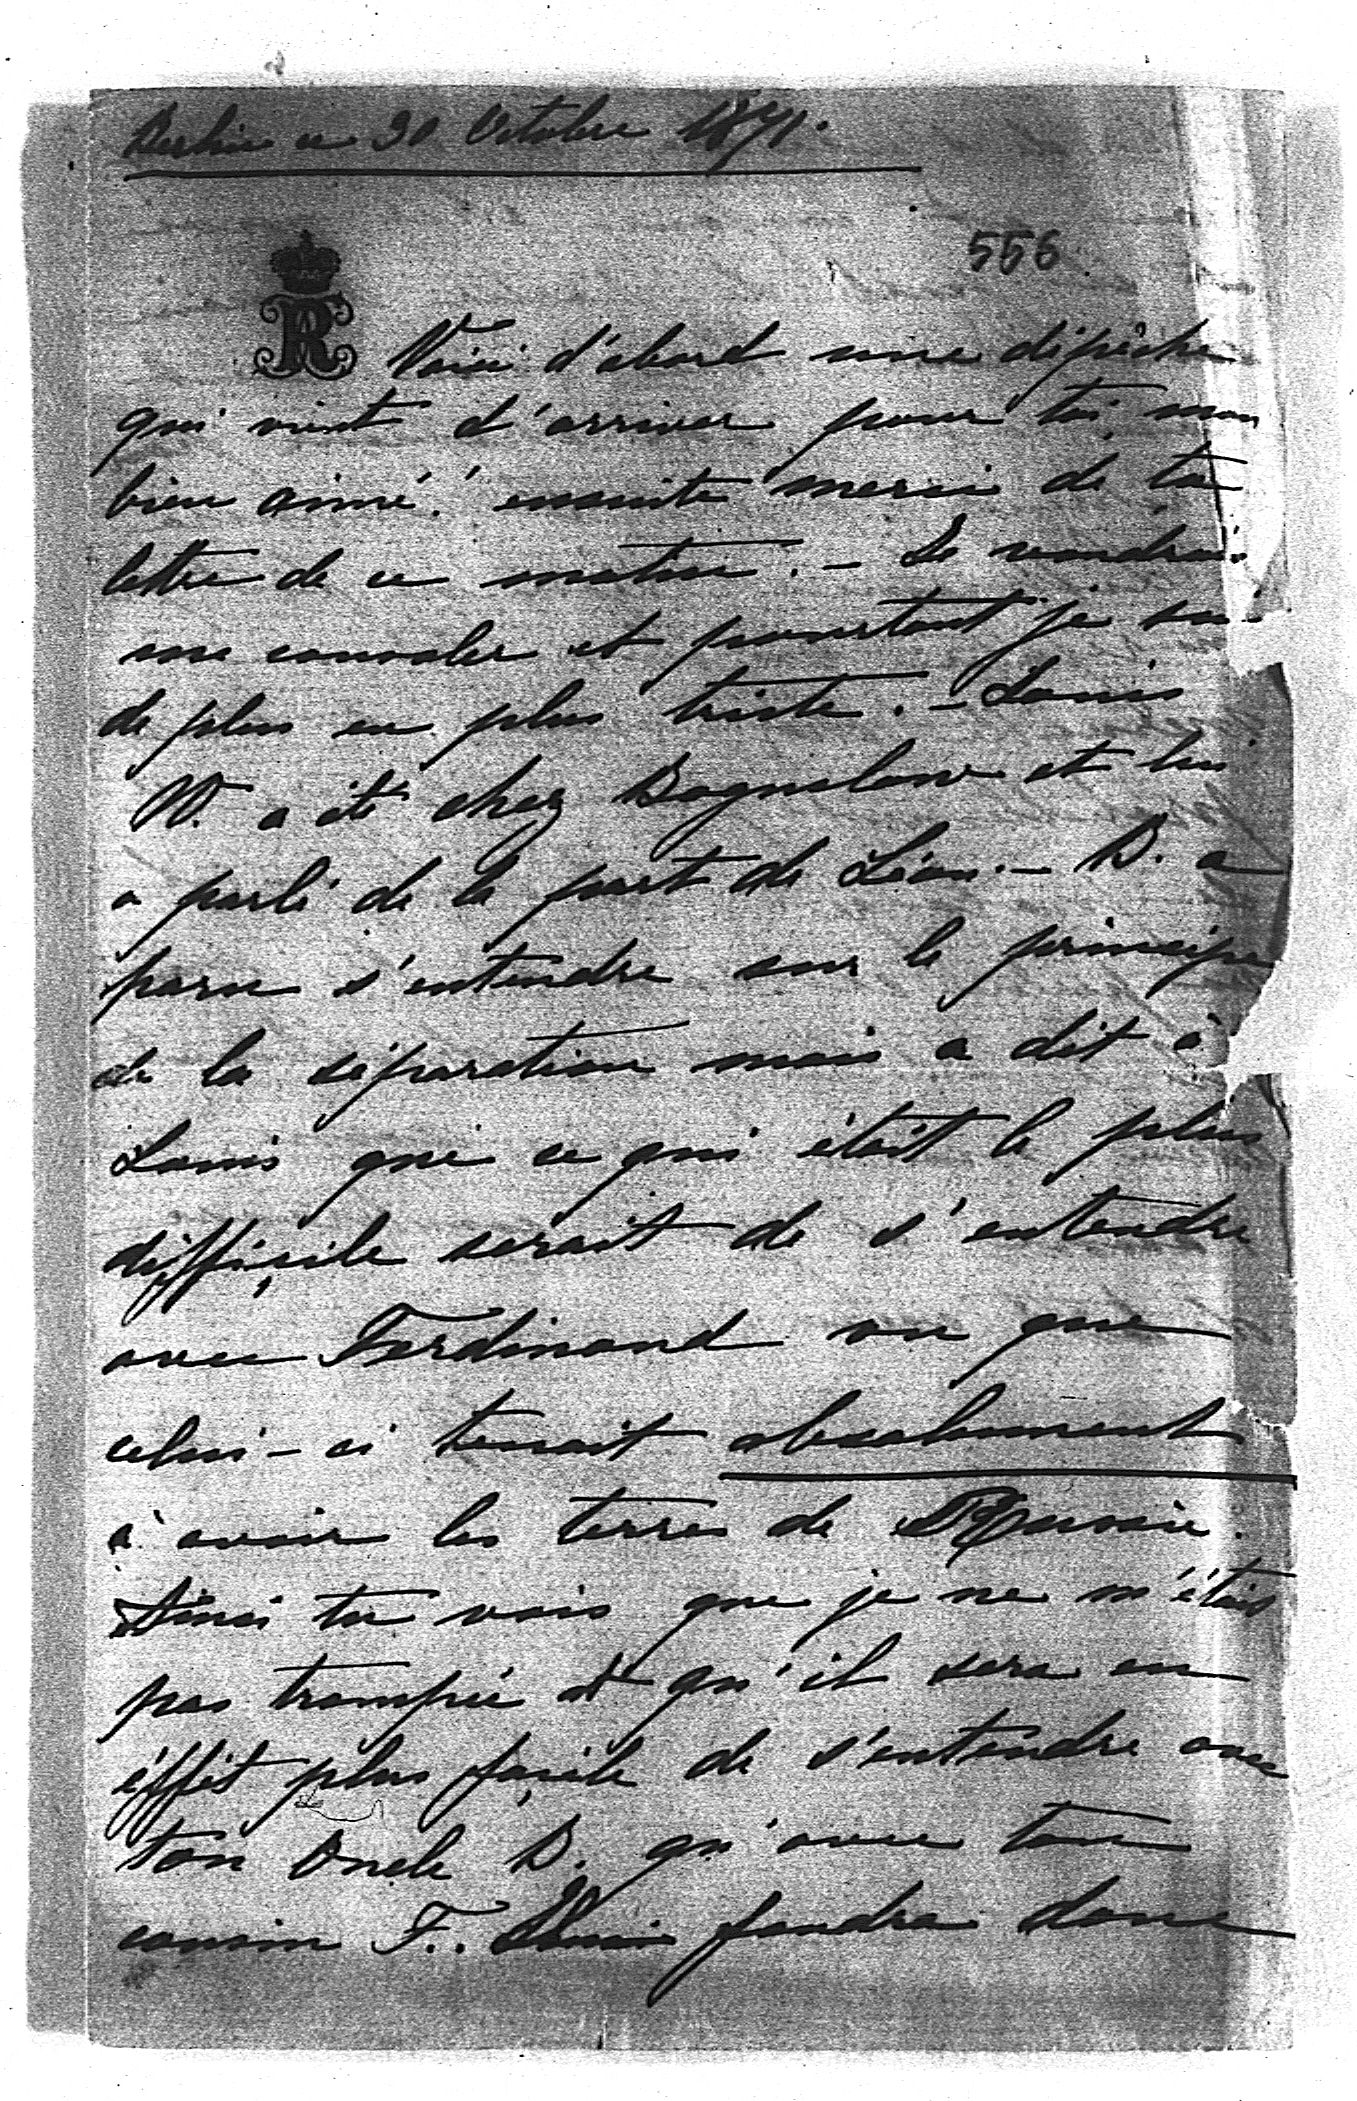 Berlin ce 30 Octobre 1871.
556
R Voici d'abord une dépèche
qui vient d'arriver pour toi, mon
bien aimé! ensuite merci de ta
lettre de ce matin. – Je voudrais
me consoler et pourtant je suis
de plus en plus triste. – Louis
W. a été chez Boguslaw et lui
a parlé de la part de Léon. – B. a
paru s'entendre sur le principe
de la séparation mais a dit à
Louis que ce qui était le plus
difficile serait de s'entendre
avec Ferdinand vu que
celui-ci tenait absolument
à avoir les terres de Russie.
Ainsi tu vois que je ne m'étais
pas trompée et qu'il sera en
éffet plus facile de s'entendre avec
ton Oncle B. qu'avec ton
cousin F.. faudra donc